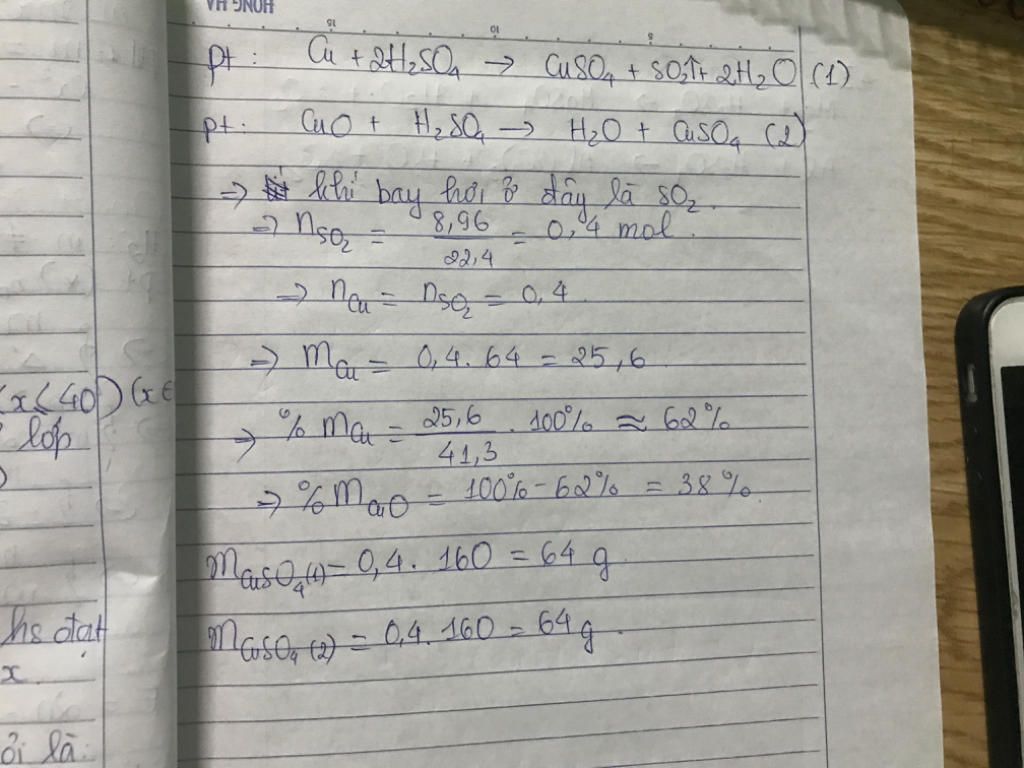 HONG HA
pt: Cu + 2H₂SO₄ → CuSO₄ + SO₂↑ + 2H₂O (1)
pt: CuO + H₂SO₄ → H₂O + CuSO₄ (2)
⇒ khí bay hơi ở đây là SO₂.
⇒ n_SO₂ = 8,96 / 22,4 = 0,4 mol.
⇒ n_Cu = n_SO₂ = 0,4.
⇒ m_Cu = 0,4 . 64 = 25,6
⇒ % m_Cu = 25,6 / 41,3 . 100% ≈ 62%
⇒ % m_CuO = 100% - 62% = 38%.
m_CuSO₄(1) = 0,4 . 160 = 64 g.
m_CuSO₄(2) = 0,4 . 160 = 64 g.
x < 40) (x ∈
lớp
hs đạt
x
ỏi là: